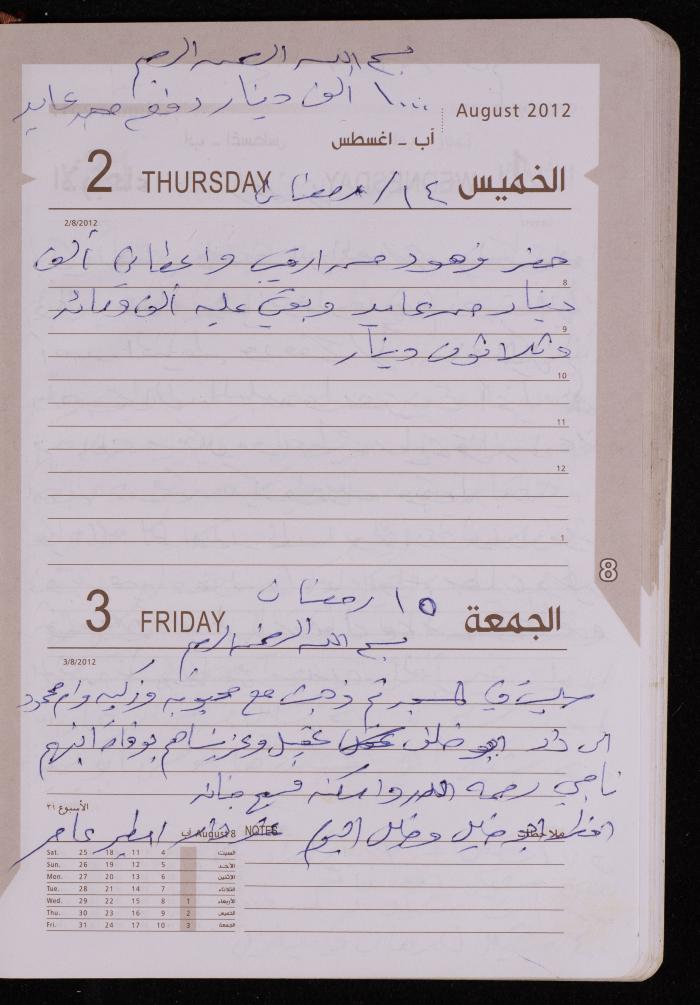 بسم الله الرحمن الرحيم
١٠٠٠ ألف دينار دفع حمد عايد
August 2012
آب - اغسطس
2 THURSDAY ١٤ / رمضان الخميس
2/8/2012
حضر فهود حمد ارقيب واعطاني ألف
8
دينار حمد عايد وبقي عليه ألف ومائه
9
وثلاثون دينار
10
11
12
1
8
3 FRIDAY ١٥ رمضان الجمعة
بسم الله الرحمن الرحيم
3/8/2012
صليت في المسجد ثم ذهبت مع محبوبه وزكيه وام محمود
الى دار ابو خلف عقيل وعزيناهم بوفاة ابنهم
ناجي رحمه الله واسكنه فسيح جنانه
الأسبوع ٣١
آب August 8 NOTES ملاحظات
Sat. 25 18 11 4 السبت
Sun. 26 19 12 5 الأحد
Mon. 27 20 13 6 الاثنين
Tue. 28 21 14 7 الثلاثاء
Wed. 29 22 15 8 1 الأربعاء
Thu. 30 23 16 9 2 الخميس
Fri. 31 24 17 10 3 الجمعة